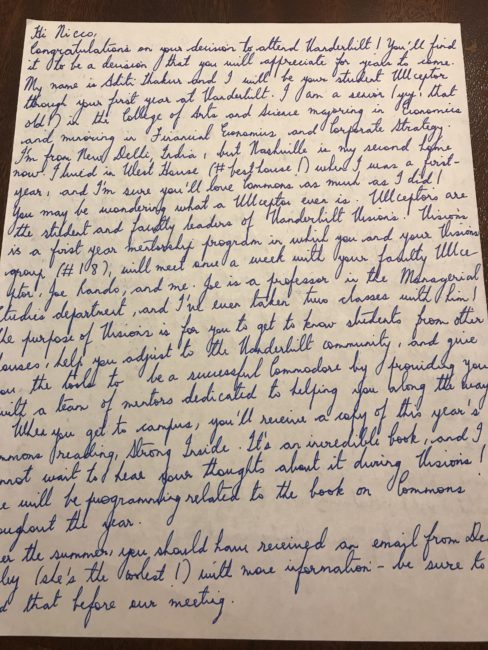 Hi Nicco,
Congratulations on your decision to attend Vanderbilt! You'll find
it to be a decision that you will appreciate for years to come.
My name is Aditi Thakur and I will be your student VUceptor
though your first year at Vanderbilt. I am a senior (yay! that
old!) in the College of Arts and Science majoring in Economics
and minoring in Financial Economics and Corporate Strategy.
I'm from New Delhi, India, but Nashville is my second home
now! I lived in West House (#besthouse!) when I was a first-
year, and I'm sure you'll love Commons as much as I did!
You may be wondering what a VUceptor even is. VUceptors are
the student and faculty leaders of Vanderbilt Visions! Visions
is a first year mentorship program in which you and your Visions
group (#18), will meet once a week with your faculty VUce
ptor, Joe Rando, and me. Joe is a professor in the Managerial
tudies department, and I've even taken two classes with him!
he purpose of Visions is for you to get to know students from other
ouses, help you adjust to the Vanderbilt community, and give
ou the tools to be a successful Commodore by providing you
with a team of mentors dedicated to helping you along the way
When you get to campus, you'll receive a copy of this year's
mmons reading, Strong Inside. It's an incredible book, and I
nnot wait to hear your thoughts about it during Visions!
e will be programming related to the book on Commons
oughout the year.
er the summer, you should have received an email from De
ley (she's the coolest!) with more information - be sure to
d that before our meeting.